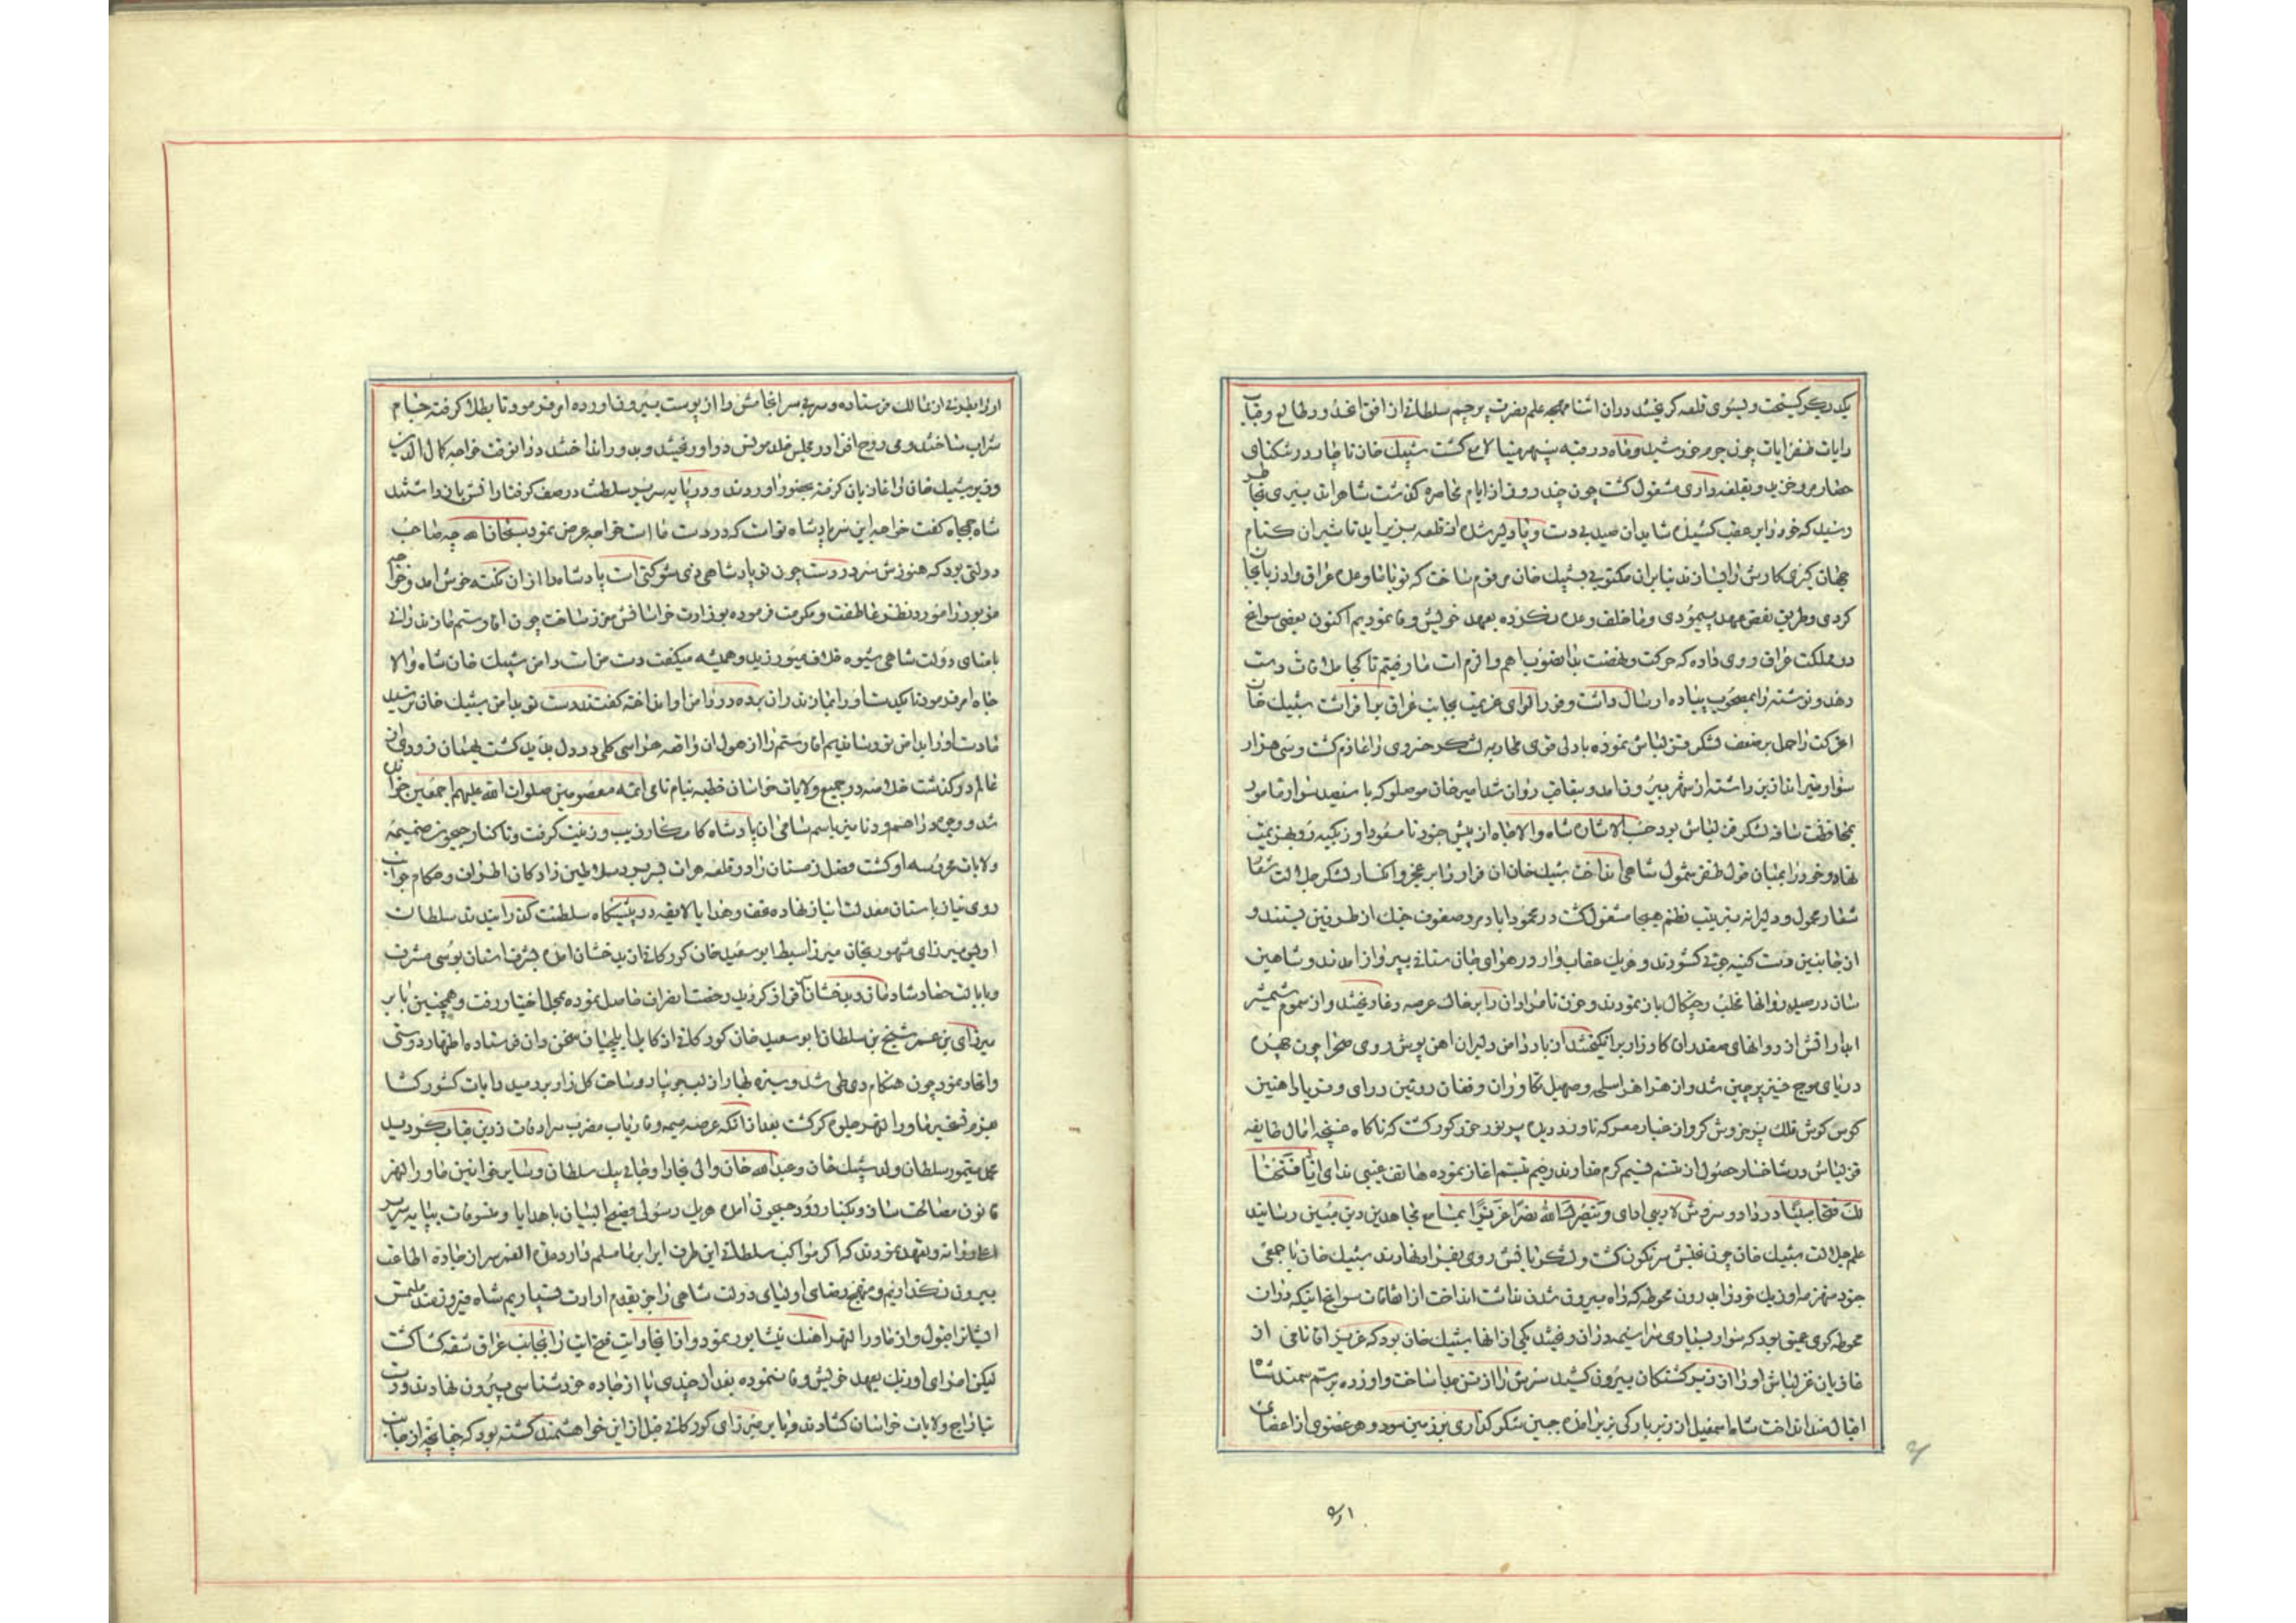 یکدیگر گسیخت و بسوی قلعه گریختند دران اثنا مهجه علم نصرت پرچم سلطانی از افق اغدور طالع و قباب
رایات ظفر ایات چون جرم خورشید و ماه در قبه سپهر مینا لامع گشت شیبک خان ناچار در تنگنای
حصار مرو خزید و بقلعه داری مشغول گشت چون چند روز از ایام محاصره گذشت شاهرا تدبیری بخاطر
رسید که خود را بر عقب کشیده شاید ان صید بی دست و پا دلیر شده از قلعه بزیر اید تا شیران کنام
جهان گیری کارش را بسازند بنابران مکتوبی بشیبک خان مرقوم ساخت که تو با ما وعده عراق و اذربایجان
کردی و طریق نقض عهد پیمودی و ما خلف وعده نکرده بعهد خویش وفا نمودیم اکنون بعضی سوانح
در مملکت عراق روی داده که حرکت و نهضت بدانصوب اهم و الزم است ما رفتیم تا کجا ملاقات دست
دهد و نوشته را مصحوب پیاده ارسال داشت و فی الفور لوای عزیمت بجانب عراق برافراشت شیبک خان
اغرکت را حمل بر ضعف لشکر قزلباش نموده با دلی قوی محاربه لشکر خسروی را عازم گشت و سی هزار
سوار تیرانداز زین راست از شهر بیرون امد و بتعاقب روان شد امیر خان موصلو که با سیصد سوار مامور
بمحافظت ساقه لشکر قزلباش بود حسب الاشاره شاه والاجاه از پیش جنود نامسعود اوزبکیه رو بهزیمت
نهاد و خود را بمیان قول ظفر شمول شاهی انداخت شیبک خان ان فرار را بر عجز و انکسار لشکر جلالت شعار
شعار محمول و دلیرانه بترتیب نظم هیجا مشغول گشت در محموداباد مرو صفوف جنگ از طرفین بستند و
از جانبین دست کینه جوئی گشودند و هریک عقاب وار در هوای جان ستانی بپرواز امدند و شاهین
سان در صید روانها مخلب و چنگال باز نمودند و خون نامرادان را بر خاک عرصه وغا ریختند و از سموم شمشیر
ابدار اتش از روانهای مقدران کارزار برانگیختند از باد دامن دلیران اهن پوش روی صحرا چون چهره
دریای موج خیز پرچین شد و از هزاهز اسلحه و صهیل تکاوران و فغان رویین درای و فریاد اهنین
کوس گوش فلک پرخروش گردید از غبار معرکه ناورد دیده پرنور خور کور گشت که ناگاه غنچه امال طایفه
قزلباش در شاخسار حصول از تنسم نسیم کرم خداوند رحیم تبسم اغاز نموده هاتف غیبی ندای انا فتحنا
لک فتحا مبینا در داد و سروش لاریبی ادای و ینصرک الله نصرا عزیزا بمسامع مجاهدین دین مبین رسانید
علم جلالت شیبک خان چون بختش سرنگون گشت و لشکریانش روی بفرار نهادند شیبک خان با جمعی
جنود منهزمه اوزبک خود را بدرون محوطه که راه بیرون شدن نداشت انداخت از اتفاقات سوانح اینکه دران
محوطه گوی عمیق بود که سوار بسیاری سراسیمه دران ریختند یکی از انها شیبک خان بود که عزیز اقا نامی از
غازیان قزلباش او را از زیر کشتگان بیرون کشید سرش را از تن جدا ساخت و اورده برستم سمند شاه
اقبالمند انداخت شاه اسمعیل از زیر بارگی بزیر امده جبین شکر گذاری بر زمین سود و هر عضوی از اعضای
۵۱
او را بطرفی از ممالک فرستاده و سر بی سرانجامش را از پوست بیرون اورده امر فرمود تا بطلا گرفته جام
شراب ساختند و می روح افزا در مجلس خلد مونس در او ریختند و بدور انداختند در انوقت خواجه کمال الدین
وزیر شیبک خان را غازیان گرفته بحضور اوردند و در پایه سریر سلطنت در صف گرفتارانش بازداشتند
شاه جمجاه گفت خواجه این سر پادشاه توست که در دست ما است خواجه عرض نمود سبحان الله چه صاحب
دولتی بود که هنوزش سر در دست چون تو پادشاهی ذی شوکتی است پادشاه را از ان نکته خوش امد و خواجه
مزبور را مورد نظر عاطفت و مکرمت فرموده بوزارت خراسانش معزز ساخت چون اقا رستم مازندرانی
با منای دولت شاهی شیوه خلاف میورزید و همیشه میگفت دست منست و دامن شیبک خان شاه والا
جاه امر فرمود تا یکدست او را بمازندران برده در دامن او انداخته گفتند دست تو بدامن شیبک خان نرسید
ما دست او را بدامن تو رساندیم اقا رستم را از هول ان واقعه هراسی کلی در دل پدید گشت بهمان زودی از
عالم درگذشت خلاصه در جمیع ولایات خراسان خطبه بنام نامی ائمه معصومین صلوات الله علیهم اجمعین خوانده
شد و وجوه دراهم و دنانیر باسم سامی ان پادشاه کامکار زیب و زینت گرفت و تا کنار جیحون ضمیمه
ولایات محروسه او گشت فصل زمستان را در قلعه هرات بسر برد سلاطین زادگان اطراف و حکام جوانب
روی نیاز باستان معدلت انباز نهاده تحف و هدایا بالایقه در پیشگاه سلطنت گذرانیدند سلطان
اویس میرزای مشهور بخان میرزا سبط ابو سعید خان کورکانی از بدخشان امده بشرف استان بوسی مشرف
و بایالت حصار شادمان و بدخشان سرافراز گردید و رخصت انصراف حاصل نموده بمحل اختیار رفت و همچنین بابر
میرزای بن عمر شیخ بن سلطان ابو سعید خان کورکانی از کابل ایلچیان سخن دان فرستاده اظهار دوستی
و اتحاد نمود چون هنگام دی طی شد و سبزه بهار از لب جویبار و ساحت گلزار بردمید رایات کشورگشا
بعزم تسخیر ماوراالنهر جلوه گر گشت بعد از انکه عرصه میمنه و فاریاب مضرب سرادقات زرین قباب گردید
محمد تیمور سلطان ولد شیبک خان و عبدالله خان والی بخارا و جانی بیک سلطان و سایر خوانین ماوراالنهر
قانون مصالحت ساز و بکنار رود جیحون امده هریک رسولی فصیح البیان با هدایا و تنسوقات بپایه سریر
اعلا روانه و تعهد نمودند که اگر مواکب سلطانی این طرف اب را بما مسلم دارد من بعد سر از جاده اطاعت
بیرون نگذاریم و منهج رضای اولیای دولت شاهی را جز بقدم ارادت نسپاریم شاه فیروزمند ملتمس
ایشانرا قبول و از ماوراالنهر اهنگ نیشابور نمود و از انجا رایات فتح ایات را بجانب عراق شقه گشا گشت
لیکن امرای اوزبک بعهد خویش وفا ننموده بعد از چندی پا از جاده خودشناسی بیرون نهادند و دست
بتاراج ولایات خراسان گشادند و بابر میرزای کورکانی قبل از این خواهشمند گشته بود که چنانچه از جانب